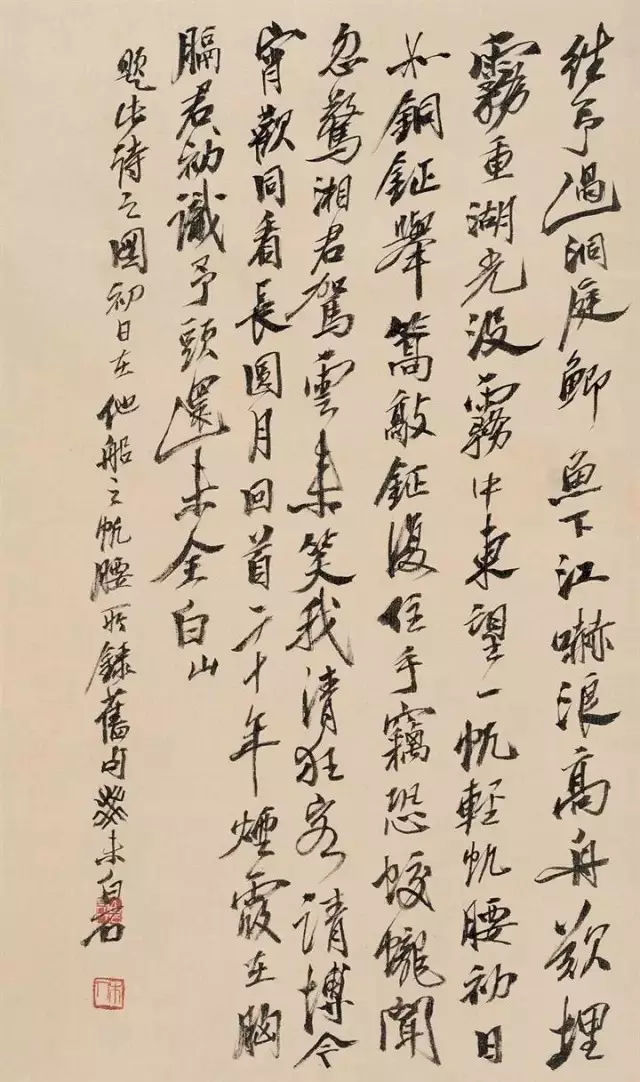 往予過洞庭鯽魚下江嚇浪高舟欲埋
霧重湖光沒霧中東望一帆輕帆腰初日
如銅鉦舉篙敲鉦復住手竊恐蛟龍聞
忽驚湘君駕雲來笑我清狂客請博今
宵歡同看長圓月回首二十年煙霞在胸
膈君初識予頭還未全白山
題此詩之圖初日在他船之帆腰錄舊句癸未白石
木人